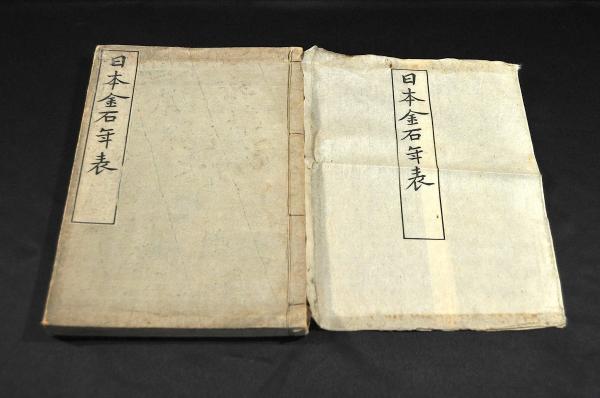 日本金石年表
日本金石年表